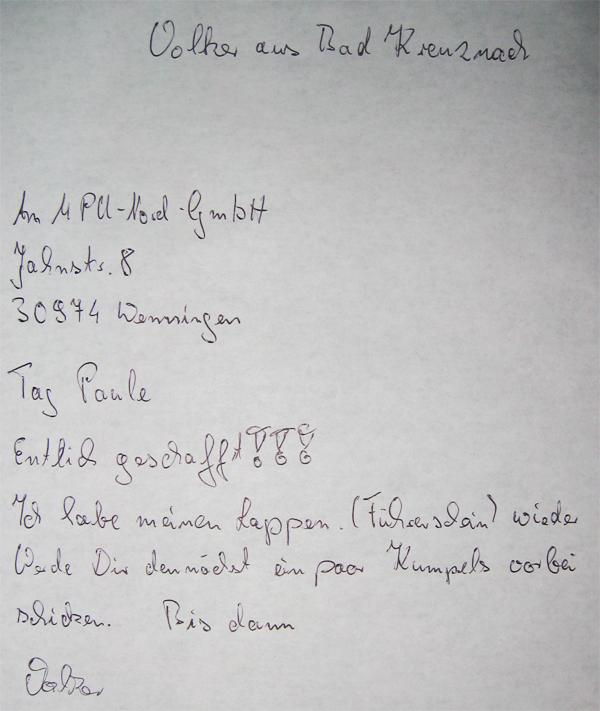 Volker aus Bad Kreuznach
An MPU-Nord-GmbH
Jahnstr. 8
30974 Wenningen
Tag Paule
Entlich geschafft!!!
Ich habe meinen Lappen. (Führerschein) wieder
Werde Dir demnächst ein paar Kumpels vorbei
schicken. Bis dann
Volker